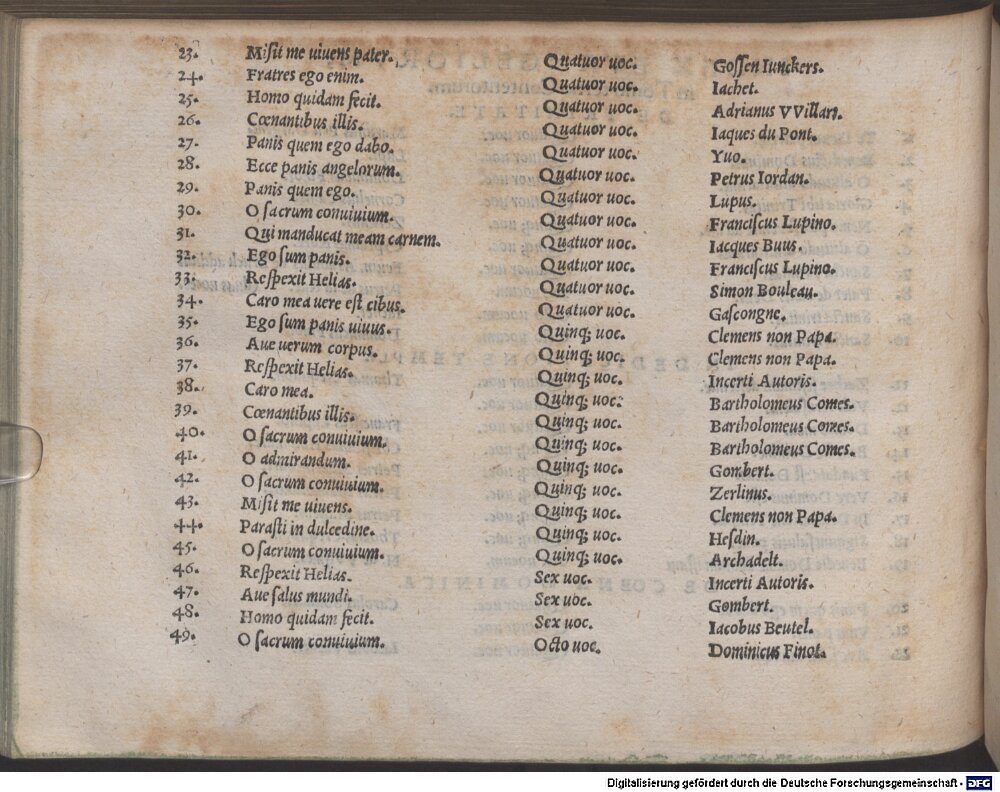 23. Misit me uiuens pater. Quatuor uoc. Gossen Iunckers.
24. Fratres ego enim. Quatuor uoc. Iachet.
25. Homo quidam fecit. Quatuor uoc. Adrianus VVillart.
26. Cœnantibus illis. Quatuor uoc. Iaques du Pont.
27. Panis quem ego dabo. Quatuor uoc. Yuo.
28. Ecce panis angelorum. Quatuor uoc. Petrus Iordan.
29. Panis quem ego. Quatuor uoc. Lupus.
30. O sacrum conuiuium. Quatuor uoc. Franciscus Lupino.
31. Qui manducat meam carnem. Quatuor uoc. Iacques Buus.
32. Ego sum panis. Quatuor uoc. Franciscus Lupino.
33. Respexit Helias. Quatuor uoc. Simon Bouleau.
34. Caro mea uere est cibus. Quatuor uoc. Gascongne.
35. Ego sum panis uiuus. Quinq; uoc. Clemens non Papa.
36. Aue uerum corpus. Quinq; uoc. Clemens non Papa.
37. Respexit Helias. Quinq; uoc. Incerti Autoris.
38. Caro mea. Quinq; uoc. Bartholomeus Comes.
39. Cœnantibus illis. Quinq; uoc. Bartholomeus Comes.
40. O sacrum conuiuium. Quinq; uoc. Bartholomeus Comes.
41. O admirandum. Quinq; uoc. Gombert.
42. O sacrum conuiuium. Quinq; uoc. Zerlinus.
43. Misit me uiuens. Quinq; uoc. Clemens non Papa.
44. Parasti in dulcedine. Quinq; uoc. Hesdin.
45. O sacrum conuiuium. Quinq; uoc. Archadelt.
46. Respexit Helias. Sex uoc. Incerti Autoris.
47. Aue salus mundi. Sex uoc. Gombert.
48. Homo quidam fecit. Sex uoc. Iacobus Beutel.
49. O sacrum conuiuium. Octo uoc. Dominicus Finot.
Digitalisierung gefördert durch die Deutsche Forschungsgemeinschaft - DFG